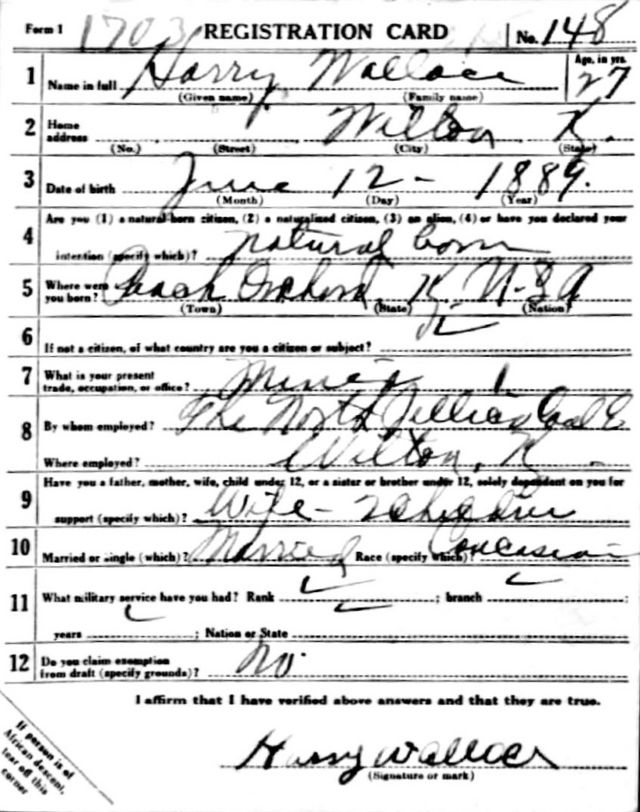 Form 1 1703 REGISTRATION CARD No. 148
1 Name in full Harry Wallace Age, in yrs. 27
(Given name) (Family name)
2 Home address Wilton K.
(No.) (Street) (City) (State)
3 Date of birth June 12 - 1889.
(Month) (Day) (Year)
Are you (1) a natural-born citizen, (2) a naturalized citizen, (3) an alien, (4) or have you declared your
4 intention (specify which)? natural born
5 Where were you born? Peach Orchard K. U-S A
(Town) (State) (Nation)
6 If not a citizen, of what country are you a citizen or subject?
7 What is your present trade, occupation, or office? Miner 1
8 By whom employed? The North Jellico Coal C
Where employed? Wilton, K.
Have you a father, mother, wife, child under 12, or a sister or brother under 12, solely dependent on you for
9 support (specify which)? Wife - 2 children
10 Married or single (which)? Married Race (specify which)? Caucasian
11 What military service have you had? Rank ; branch ;
years ; Nation or State
12 Do you claim exemption from draft (specify grounds)? No.
I affirm that I have verified above answers and that they are true.
If person is of
African descent,
tear off this
corner
Harry Wallace
(Signature or mark)